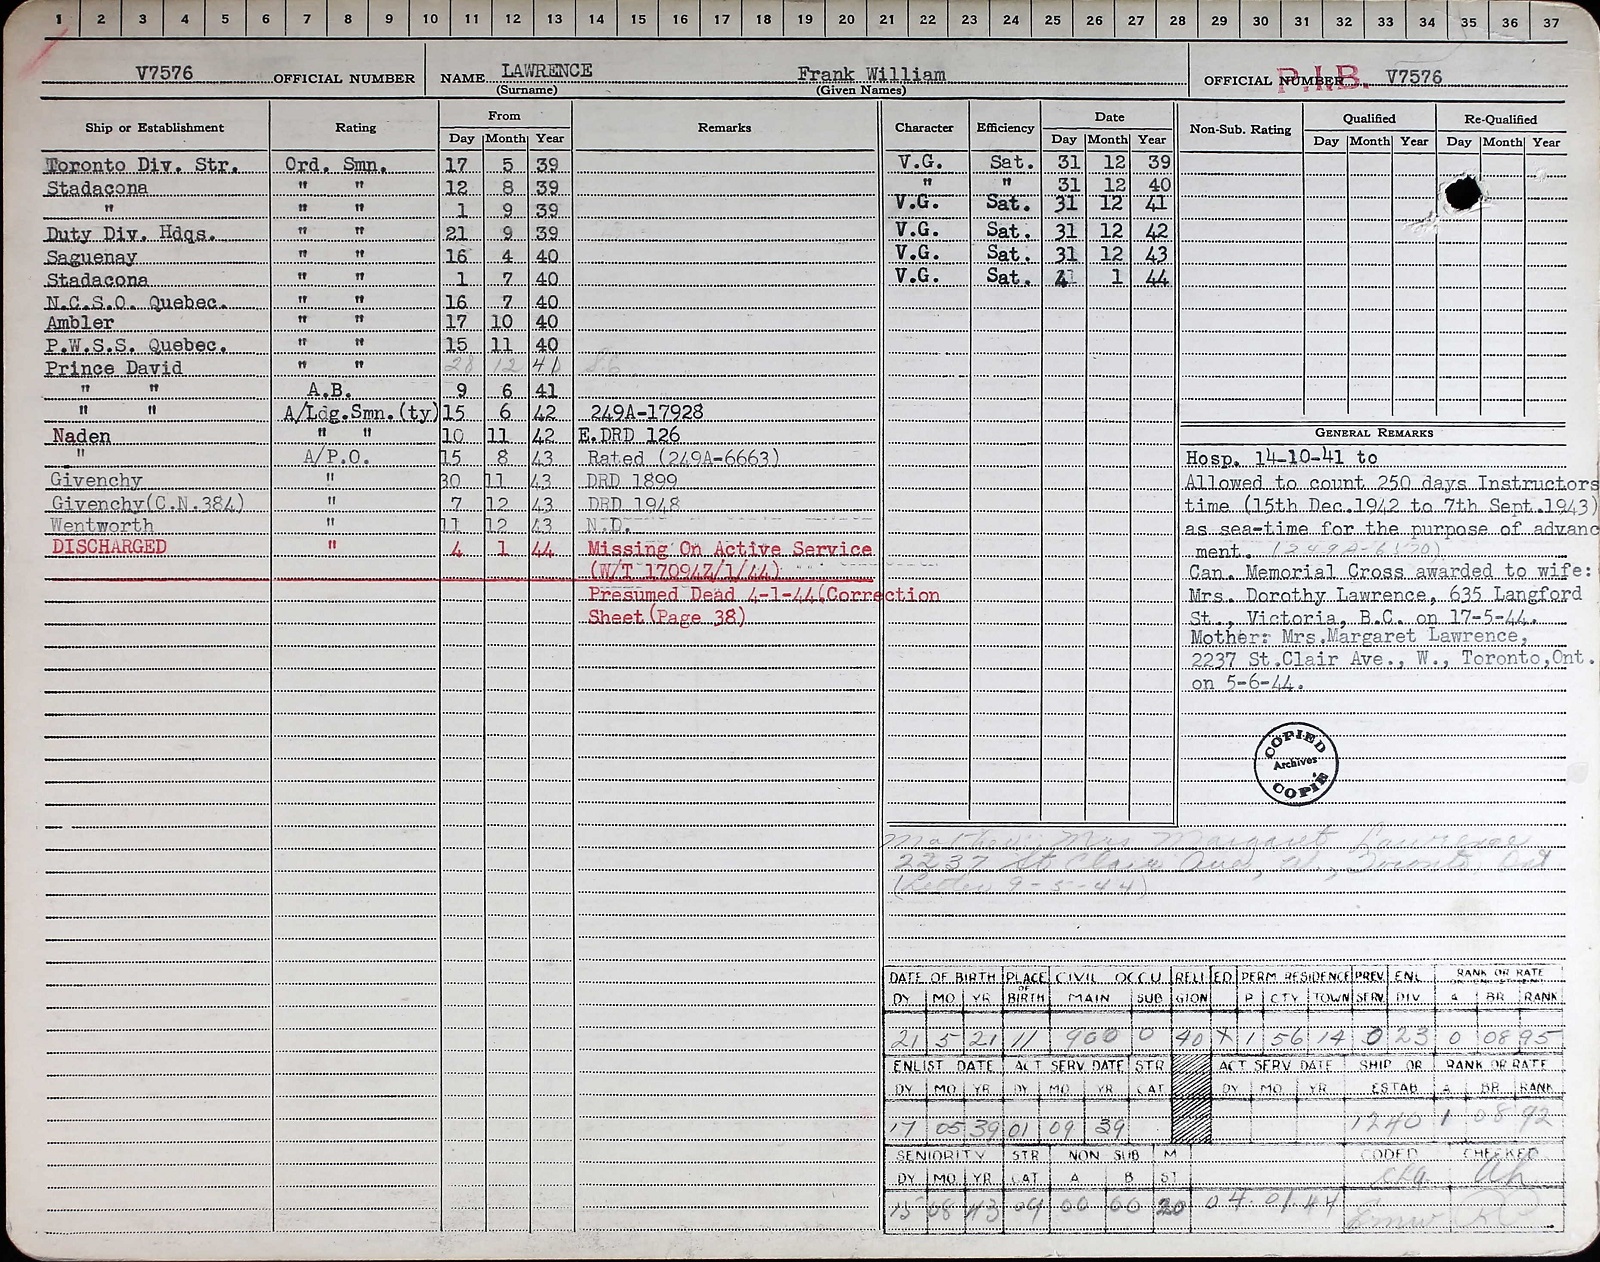 1 2 3 4 5 6 7 8 9 10 11 12 13 14 15 16 17 18 19 20 21 22 23 24 25 26 27 28 29 30 31 32 33 34 35 36 37
V7576 OFFICIAL NUMBER NAME LAWRENCE Frank William OFFICIAL NUMBER P.I.B. V7576
(Surname) (Given Names)
Ship or Establishment Rating From Remarks
Day Month Year
Toronto Div. Str. Ord. Smn. 17 5 39
Stadacona " " 12 8 39
" " " 1 9 39
Duty Div. Hdqs. " " 21 9 39
Saguenay " " 16 4 40
Stadacona " " 1 7 40
N.C.S.O. Quebec. " " 16 7 40
Ambler " " 17 10 40
P.W.S.S. Quebec. " " 15 11 40
Prince David " " 28 12 40
" " A.B. 9 6 41
" " A/Ldg.Smn.(ty) 15 6 42 249A-17928
Naden " " 10 11 42 E.DRD 126
" A/P.O. 15 8 43 Rated (249A-6663)
Givenchy " 30 11 43 DRD 1899
Givenchy(C.N.384) " 7 12 43 DRD 1948
Wentworth " 11 12 43 N.D.
DISCHARGED " 4 1 44 Missing On Active Service
(W/T 170947/1/44)
Presumed Dead 4-1-44(Correction
Sheet(Page 38)
Character Efficiency Date
Day Month Year
V.G. Sat. 31 12 39
" " 31 12 40
V.G. Sat. 31 12 41
V.G. Sat. 31 12 42
V.G. Sat. 31 12 43
V.G. Sat. 4 1 44
Non-Sub. Rating Qualified Re-Qualified
Day Month Year Day Month Year
GENERAL REMARKS
Hosp. 14-10-41 to
Allowed to count 250 days Instructors
time (15th Dec.1942 to 7th Sept.1943)
as sea-time for the purpose of advanc
ment. (249A-6170)
Can. Memorial Cross awarded to wife:
Mrs. Dorothy Lawrence, 635 Langford
St., Victoria, B.C. on 17-5-44.
Mother: Mrs.Margaret Lawrence,
2237 St.Clair Ave., W., Toronto,Ont.
on 5-6-44.
COPIED
Archives
COPIE
Mother: Mrs Margaret Lawrence
2237 St Clair Ave, W., Toronto, Ont
(Letter 9-5-44)
DATE OF BIRTH PLACE OF BIRTH CIVIL OCCU RELIGION ED PERM RESIDENCE PREV SERV ENL DIV RANK OR RATE
DY MO YR MAIN SUB P CTY TOWN A BR RANK
21 5 21 11 960 0 40 X 1 56 14 0 23 0 08 95
ENLIST DATE ACT SERV DATE STR ACT SERV DATE SHIP OR RANK OR RATE
DY MO YR DY MO YR CAT DY MO YR ESTAB A BR RANK
17 05 39 01 09 39 1240 1 08 92
SENIORITY STR NON SUB M CODED CHECKED
DY MO YR CAT A B ST
15 08 43 09 00 00 20 04.01.44